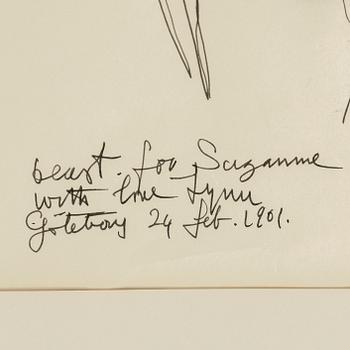 beast. for Suzanne
with love Lynn
Göteborg 24 feb. 1901.